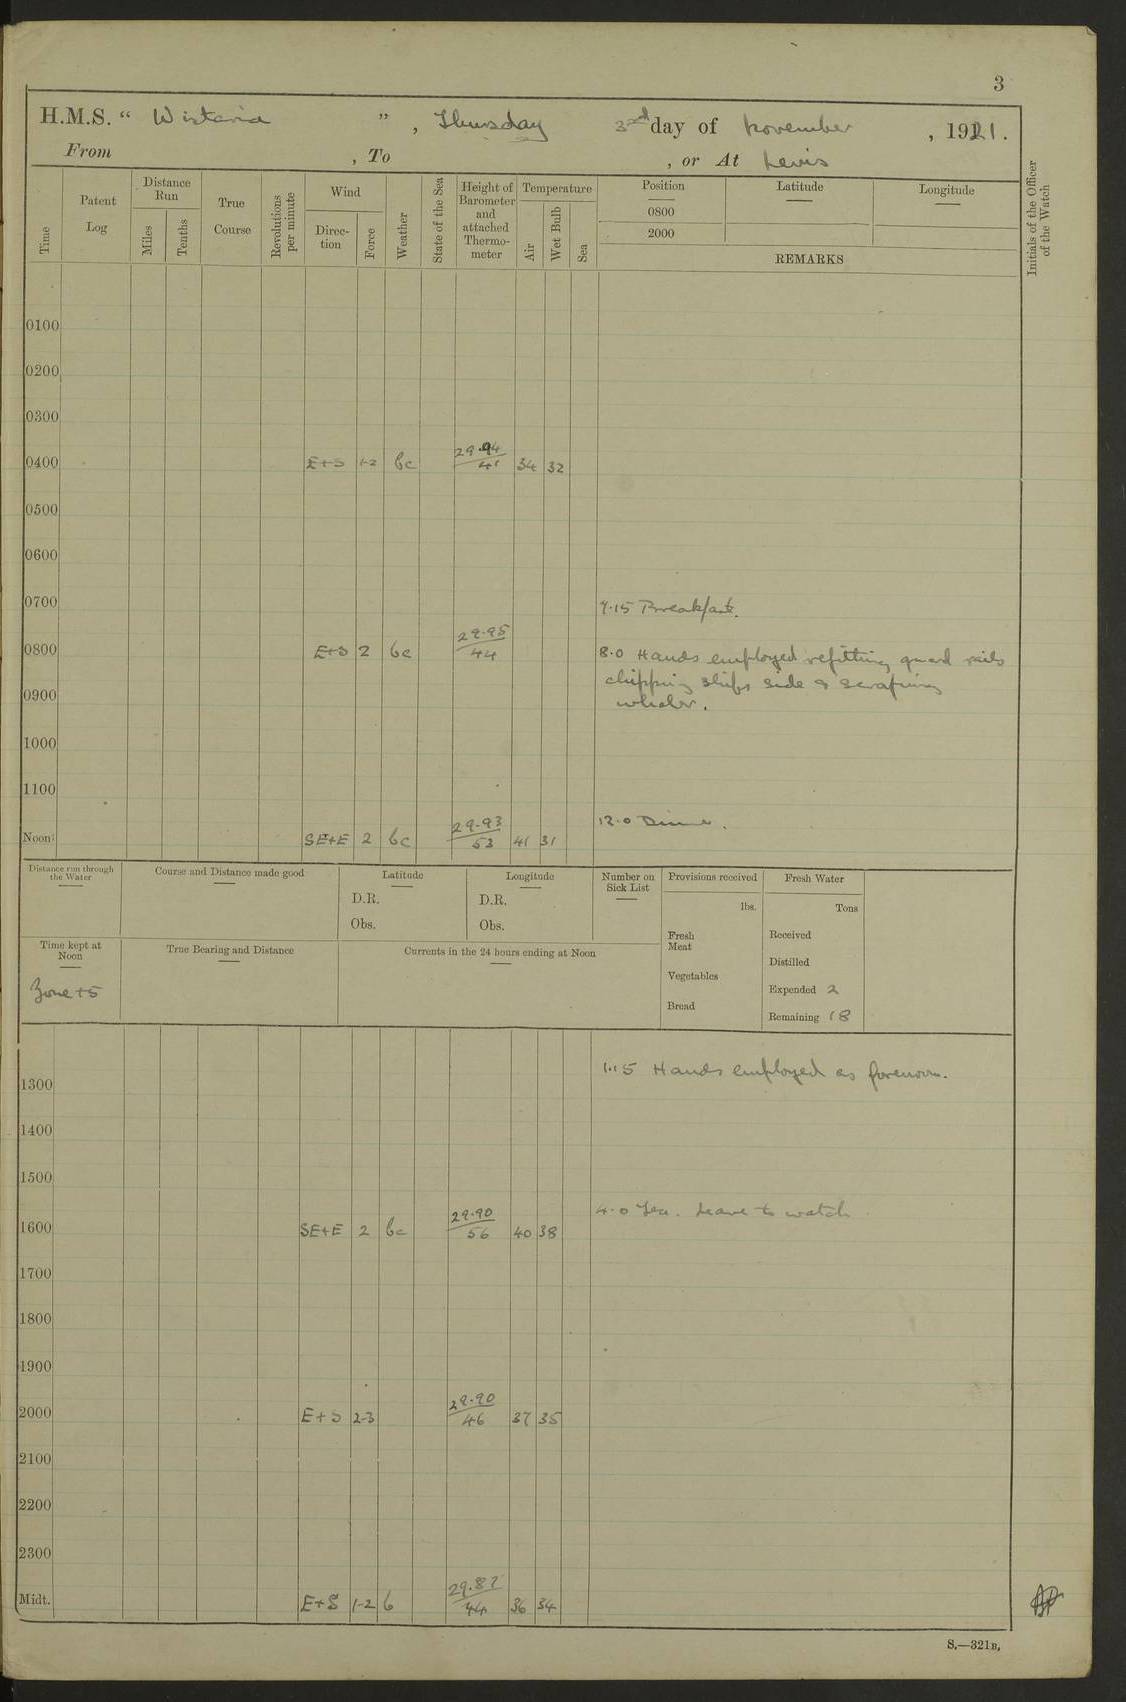 3
H.M.S. “ Wistaria ” , Thursday 3rd day of November , 1921.
From , To , or At Levis
Time
Patent Log
Distance Run
Miles
Tenths
True Course
Revolutions per minute
Wind
Direction
Force
Weather
State of the Sea
Height of Barometer and attached Thermometer
Temperature
Air
Wet Bulb
Sea
Position Latitude Longitude
0800
2000
REMARKS
Initials of the Officer of the Watch
0100
0200
0300
0400 E+S 1-2 bc 29.94 41 34 32
0500
0600
0700 7.15 Breakfast.
0800 E+S 2 bc 29.95 44 8.0 Hands employed refitting guard rails
chipping ships side & scraping
0900 whaler.
1000
1100
12.0 Dinner.
Noon SE+E 2 bc 29.93 53 41 31
Distance run through the Water
Course and Distance made good
Latitude
D.R.
Obs.
Longitude
D.R.
Obs.
Number on Sick List
Provisions received
lbs.
Fresh Meat
Vegetables
Bread
Fresh Water
Tons
Received
Distilled
Expended 2
Remaining 18
Time kept at Noon
Zone +5
True Bearing and Distance
Currents in the 24 hours ending at Noon
1.15 Hands employed as forenoon.
1300
1400
1500
4.0 Tea. Leave to watch
1600 SE+E 2 bc 29.90 56 40 38
1700
1800
1900
2000 E+S 2-3 29.90 46 37 35
2100
2200
2300
Midt. E+S 1-2 b 29.87 44 36 34
S.—321B.